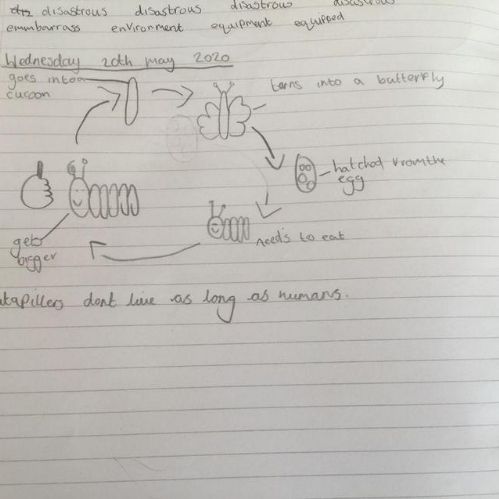 disastrous disastrous disastrous disastrous
emmbarrass environment equipment equipped
Wednesday 20th may 2020
goes into a
cucoon
turns into a butterfly
hatched from the
egg
needs to eat
gets
bigger
atapillers dont live as long as humans.